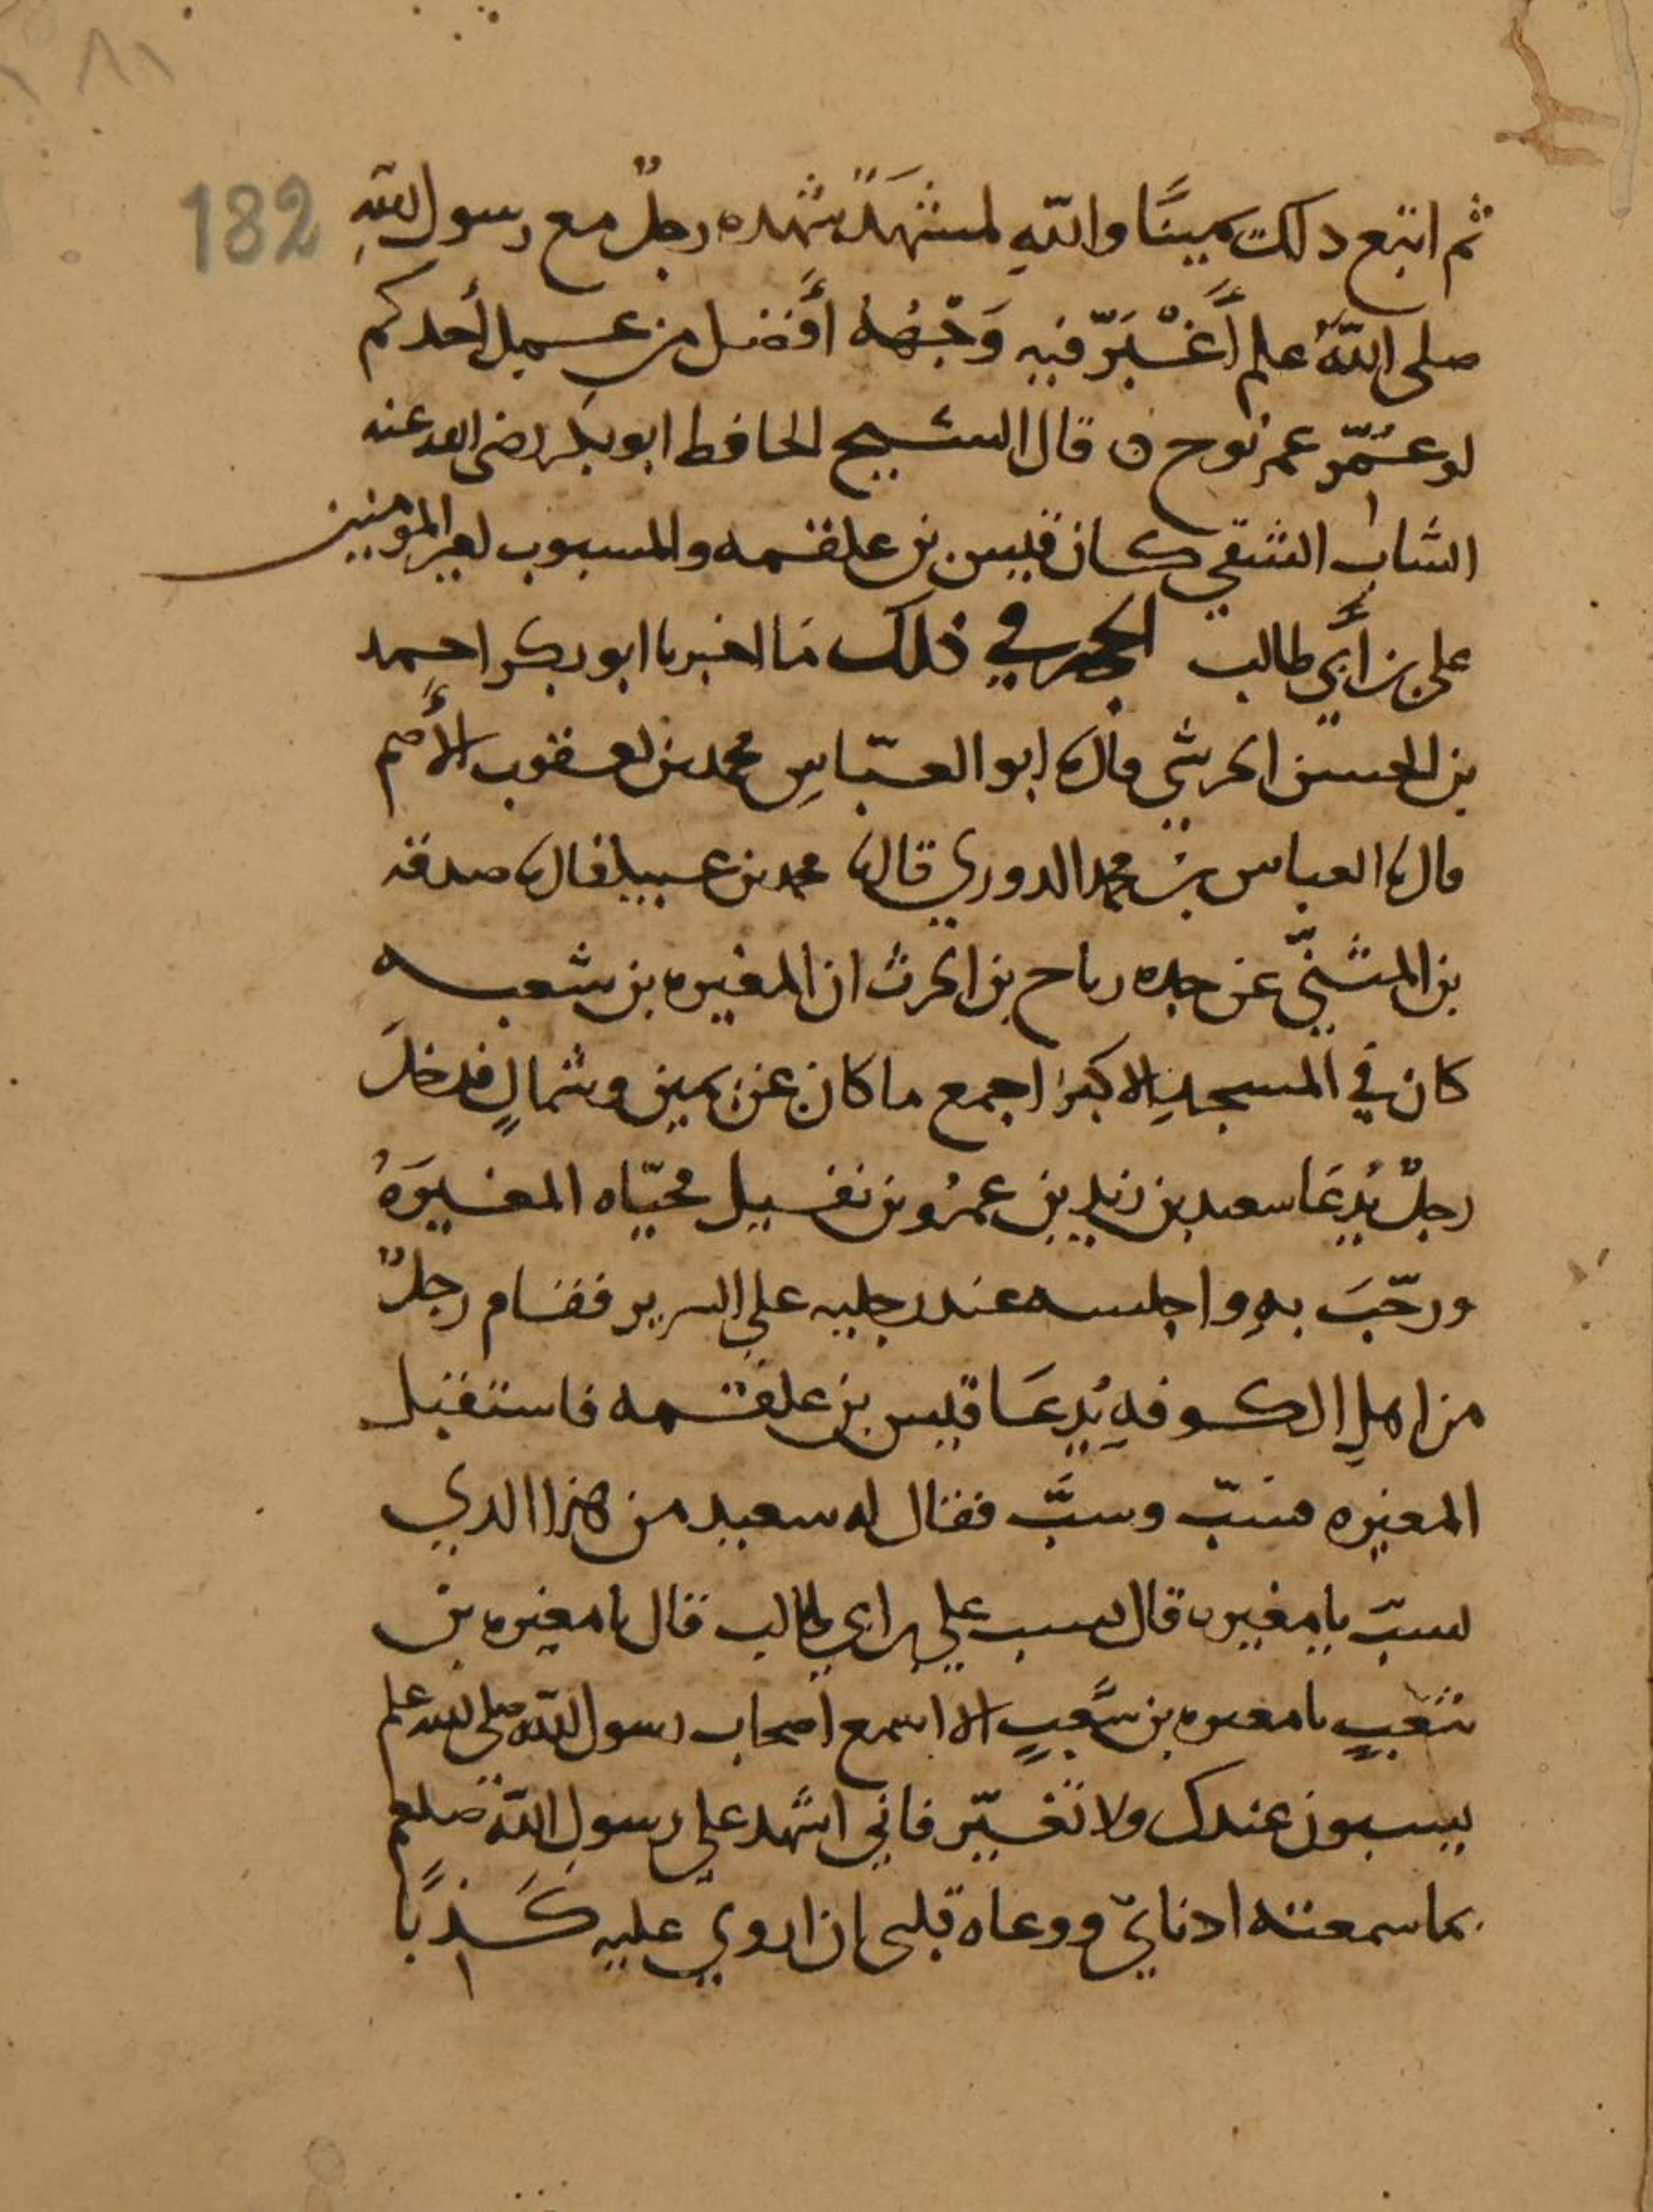 182
ثم اتبع ذلك يمينًا والله لمشهدٌ شهده رجلٌ مع رسول الله
صلى الله علم أَغْبَرّ فيه وَجْهُهُ أَفضل من عمل أحدكم
لو عُمّر عمر نوح ن قال الشيخ الحافظ ابو بكر رضى الله عنه
الساب الشقي كان قيس بن علقمه والمسبوب امير المومنين
علي بن أَبي طالب الحجه في ذلك ما اخبرنا ابو بكر احمد
بن الحسن الحرشي قال نا ابو العبّاسِ محمد بن يعقوب الأَصم
قال نا العباس بن محمد الدوري قال نا محمد بن عبيد قال نا صدقه
بن المثنيّ عن جده رياح بن الحرث ان المغيره بن شعبه
كان في المسجدِ الاكبر اجمع ما كان عن يمين وشمالٍ فدخلَ
رجلٌ يُدعَا سعيد بن زيد بن عمرُو بن نفيل فحيّاه المغيرَةُ
ورحّبَ بهِ واجلسه عند رجليه علي السرير فقام رجلٌ
من اهلِ الكوفهِ يُدعَا قيس بن علقمه فاستقبل
المغيره فسبّ وسبَّ فقال له سعيد من هذا الذي
يسبّ يا مغيره قال يسب علي بن ابي طالب قال يا مغيره بن
شعبٍ يا مغيره بن شعبٍ الا اسمع اصحاب رسول الله صلى الله علم
يسبون عندك ولا تغيّر فاني اشهد علي رسول الله صلعم
بما سمعته اذنايّ ووعاه قلبى ان اروي عليه كَذبًا